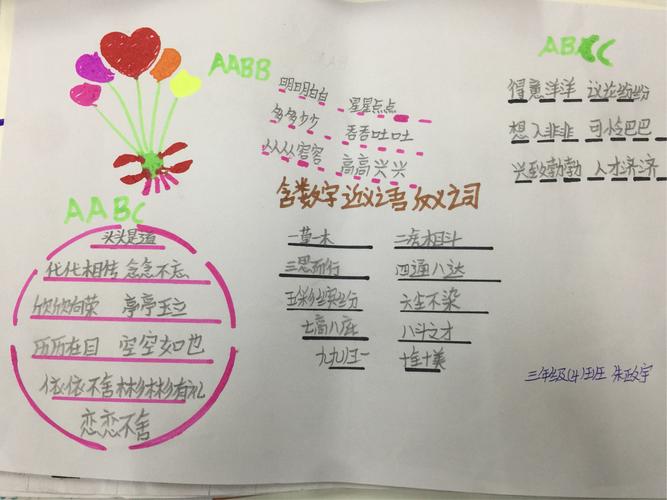 AABB
明明白白 星星点点
多多少少 吞吞吐吐
从从容容 高高兴兴
ABCC
得意洋洋 议论纷纷
想入非非 可怜巴巴
兴致勃勃 人才济济
AABC
头头是道
代代相传 念念不忘
欣欣向荣 亭亭玉立
历历在目 空空如也
依依不舍 彬彬有礼
恋恋不舍
含数字 近义 反义词
一草一木 二虎相斗
三思而行 四通八达
五彩缤纷 六尘不染
七高八底 八斗之才
九九归一 十全十美
三年级(4)班 朱政宇